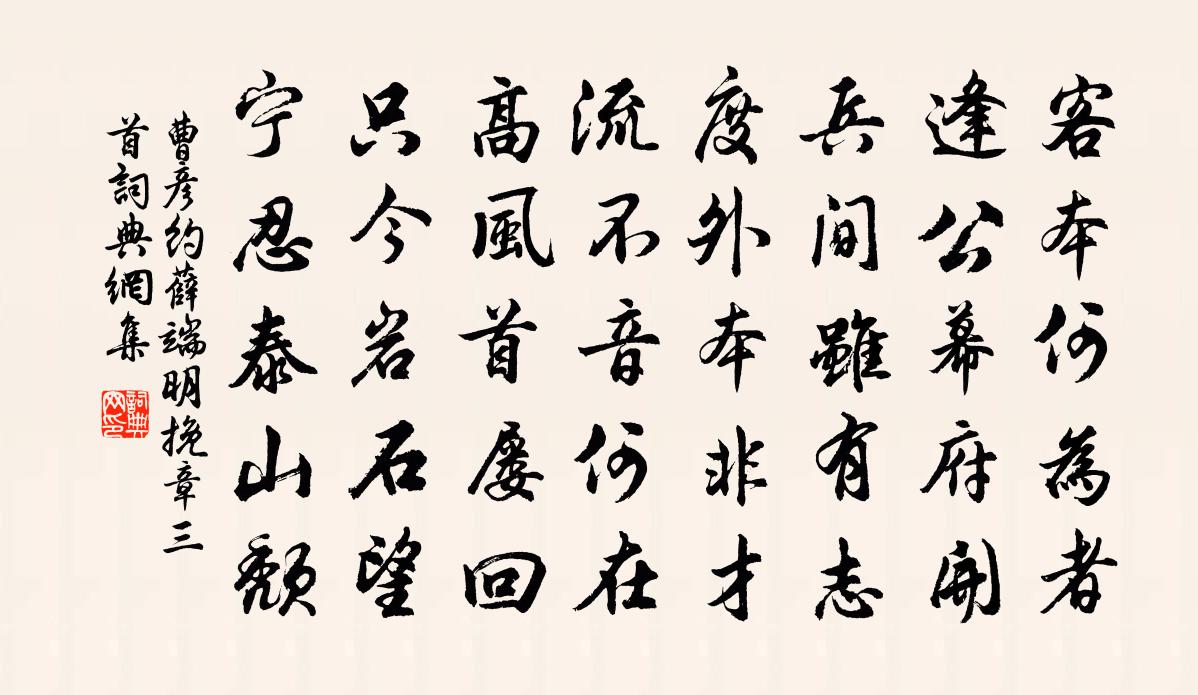 客本何為者
逢公幕府開
兵間雖有志
度外本非才
流不音何在
高風首屢回
只今岩石望
宁忍泰山頹
曹彦約薛端明挽章三
首詞典網集
詞典
网印